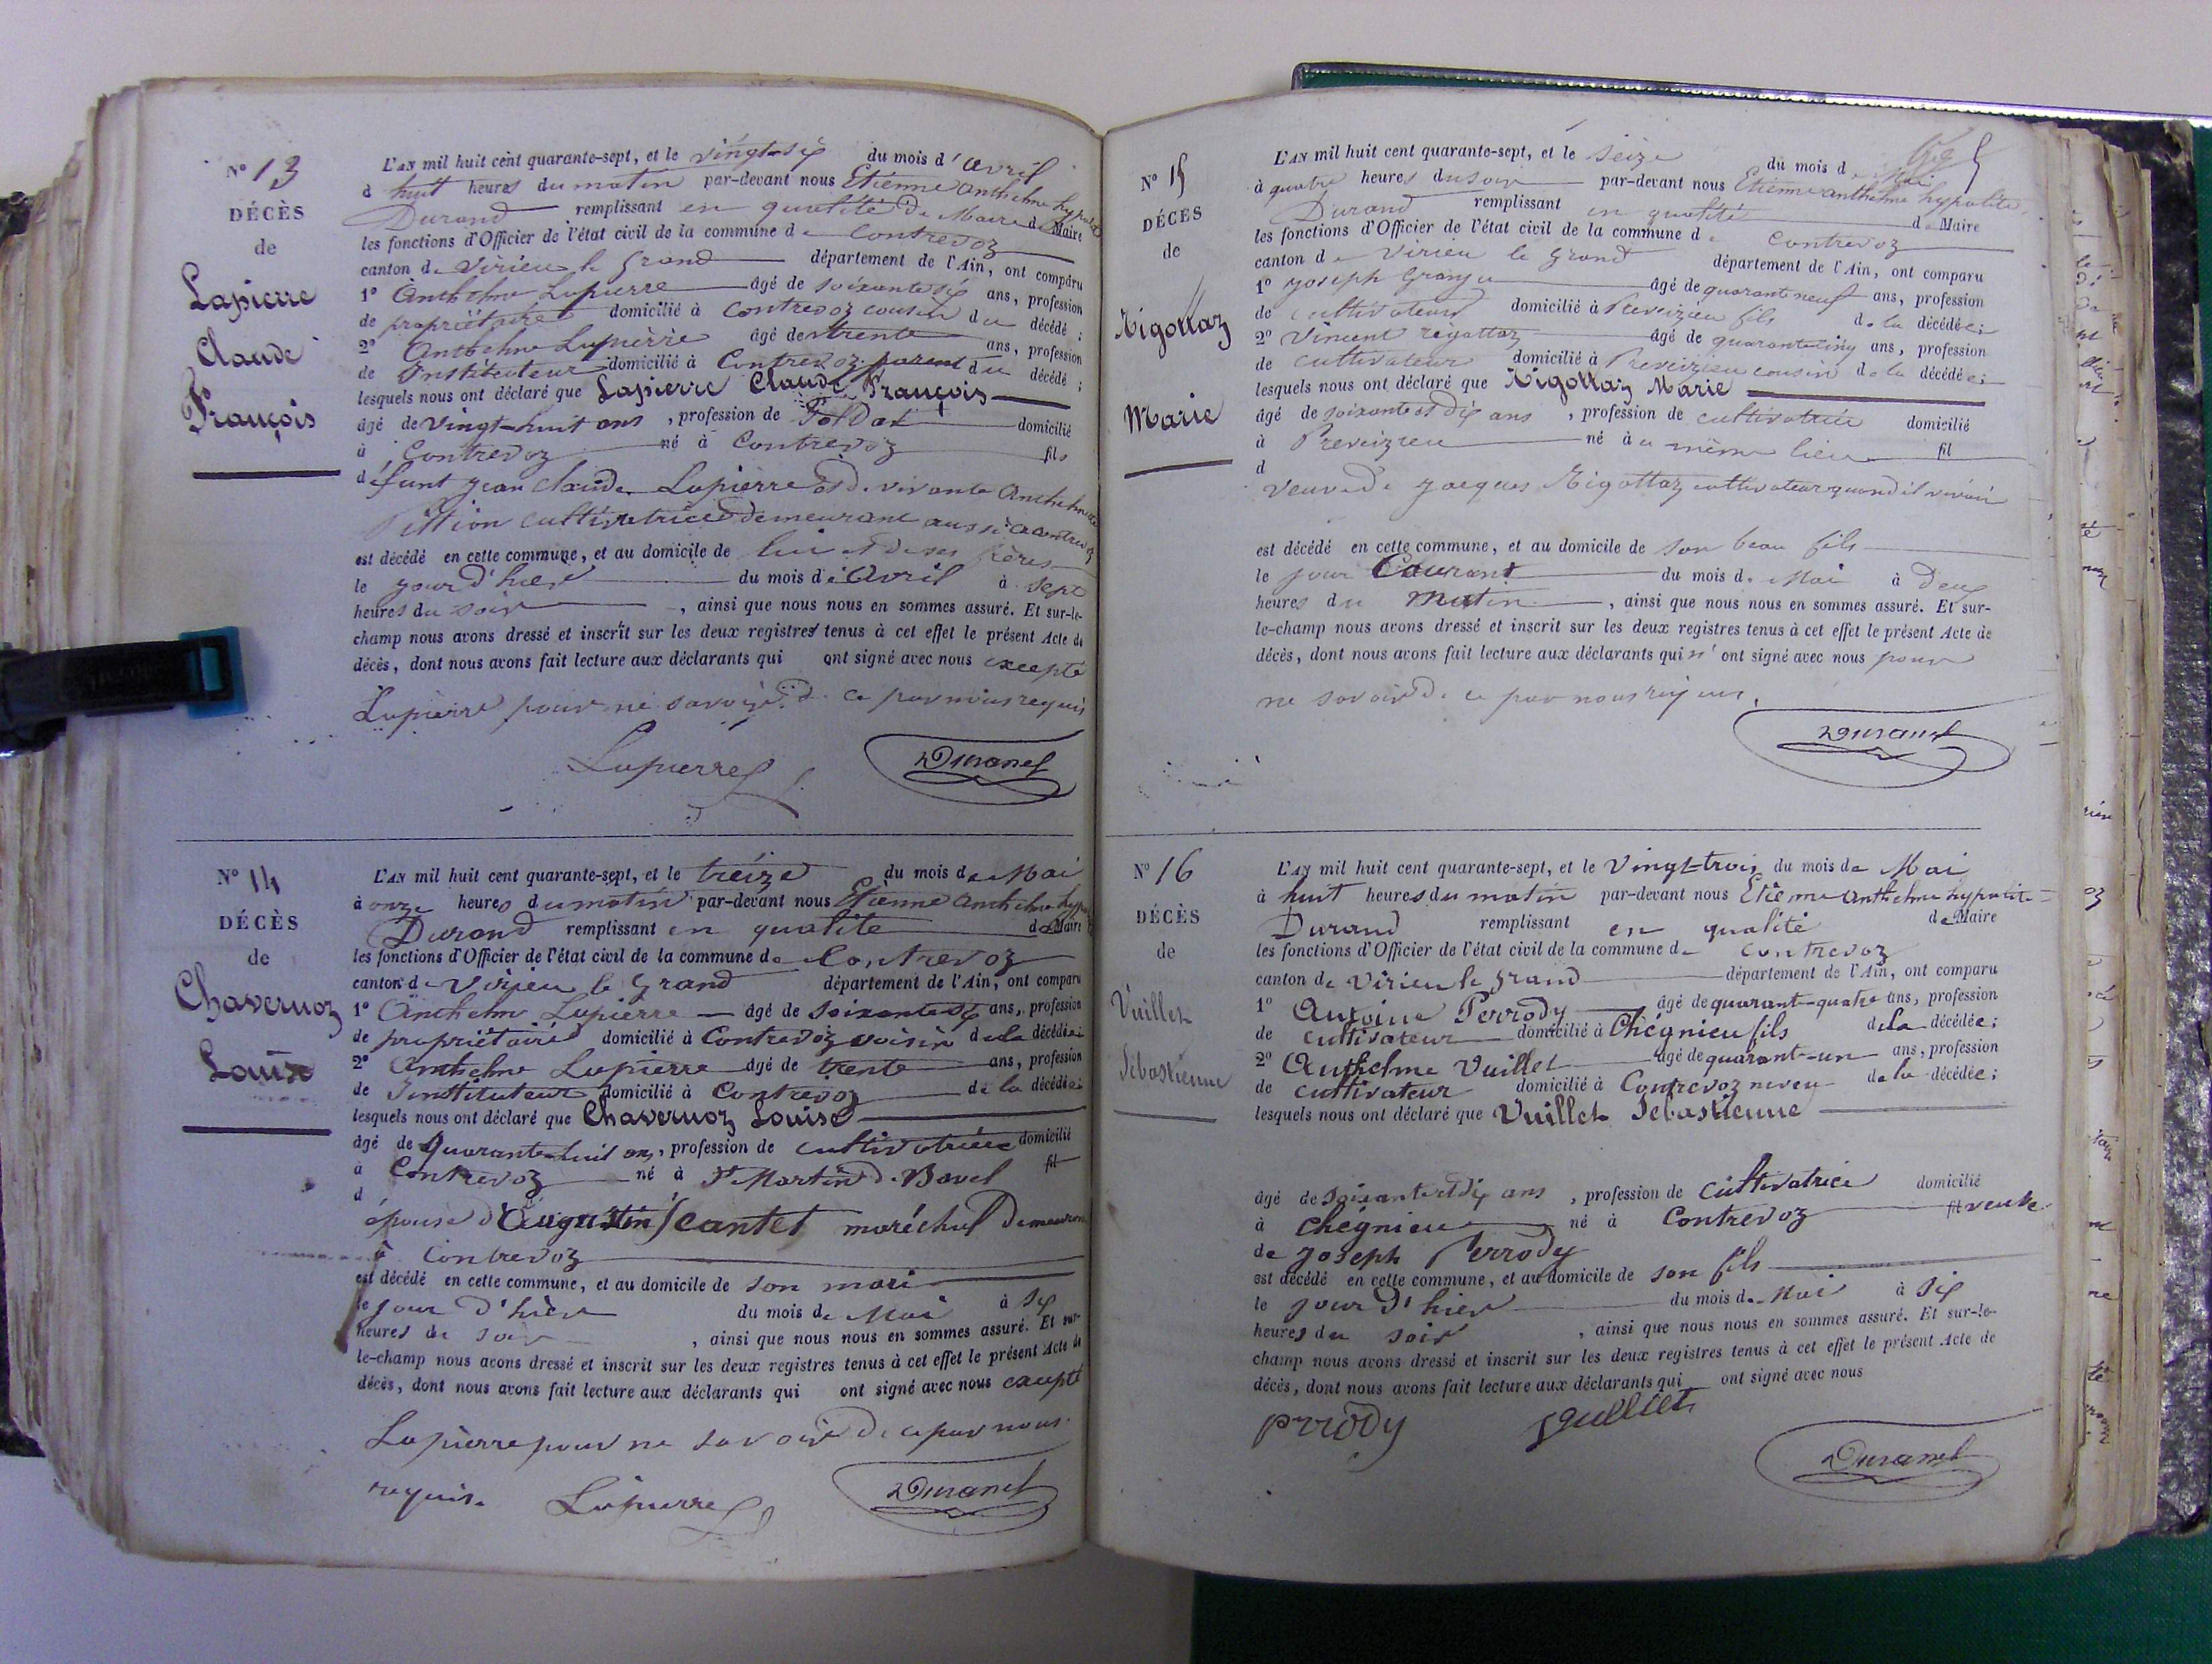 N° 13
DÉCÈS
de
Lapierre
Claude
François
L'AN mil huit cent quarante-sept, et le vingt-six du mois d'avril
à huit heures du matin par-devant nous Etienne Anthelme hypolite
Durand remplissant en qualité de Maire d Maire
les fonctions d'Officier de l'état civil de la commune de Contrevoz
canton de Virieu le Grand département de l'Ain, ont comparu
1° Anthelme Lapierre âgé de soixante six ans, profession
de propriétaire domicilié à Contrevoz cousin du décédé ;
2° Anthelme Lapierre âgé de trente ans, profession
de Instituteur domicilié à Contrevoz parent du décédé ;
lesquels nous ont déclaré que Lapierre Claude François
âgé de vingt-huit ans, profession de Soldat domicilié
à Contrevoz né à Contrevoz fils
défunt jean claude Lapierre et de vivante Anthelmette
Pittion cultivatrice demeurant aussi a Contrevoz
est décédé en cette commune, et au domicile de lui et de ses frères
le jour d'hier du mois d'Avril à sept
heures du soir, ainsi que nous nous en sommes assuré. Et sur-le-
champ nous avons dressé et inscrit sur les deux registres tenus à cet effet le présent Acte de
décès, dont nous avons fait lecture aux déclarants qui ont signé avec nous excepté
Lapierre pour ne savoir de ce par nous requis
Lapierre Durand
N° 14
DÉCÈS
de
Chavernoz
Louise
L'AN mil huit cent quarante-sept, et le treize du mois de Mai
à onze heures du matin par-devant nous Etienne Anthelme hypolite
Durand remplissant en qualité de Maire
les fonctions d'Officier de l'état civil de la commune de Contrevoz
canton de Virieu le Grand département de l'Ain, ont comparu
1° Anthelme Lapierre âgé de soixante six ans, profession
de propriétaire domicilié à Contrevoz voisin de la décédée ;
2° Anthelme Lapierre âgé de trente ans, profession
de Instituteur domicilié à Contrevoz de la décédée ;
lesquels nous ont déclaré que Chavernoz Louise
âgé de Quarante-huit ans, profession de cultivatrice domicilié
à Contrevoz né à St Martin de Bavel fil
d
épouse d'Augustin Scantet maréchal demeurant
à Contrevoz
est décédé en cette commune, et au domicile de son mari
le jour d'hier du mois de Mai à six
heures du soir, ainsi que nous nous en sommes assuré. Et sur-
le-champ nous avons dressé et inscrit sur les deux registres tenus à cet effet le présent Acte de
décès, dont nous avons fait lecture aux déclarants qui ont signé avec nous excepté
Lapierre pour ne savoir de ce par nous
requis. Lapierre Durand
N° 15
DÉCÈS
de
Rigottaz
Marie
L'AN mil huit cent quarante-sept, et le seize du mois de Mai
à quatre heures du soir par-devant nous Etienne anthelme hypolite
Durand remplissant en qualité de Maire
les fonctions d'Officier de l'état civil de la commune de Contrevoz
canton de Virieu le Grand département de l'Ain, ont comparu
1° joseph Granju âgé de quarante neuf ans, profession
de cultivateur domicilié à Preveizieu fils de la décédée ;
2° Vincent rigottaz âgé de quarante cinq ans, profession
de cultivateur domicilié à Preveizieu cousin de la décédée ;
lesquels nous ont déclaré que Rigottaz Marie
âgé de soixante et dix ans, profession de cultivatrice domicilié
à Preveizieu né à u même lieu fil
d
veuve de jacques Rigottaz cultivateur quand il vivait
est décédé en cette commune, et au domicile de son beau fils
le jour Courant du mois de Mai à deux
heures du Matin, ainsi que nous nous en sommes assuré. Et sur-
le-champ nous avons dressé et inscrit sur les deux registres tenus à cet effet le présent Acte de
décès, dont nous avons fait lecture aux déclarants qui n'ont signé avec nous pour
ne savoir de ce par nous requis.
Durand
N° 16
DÉCÈS
de
Vuillet
Sébastienne
L'AN mil huit cent quarante-sept, et le Vingt-trois du mois de Mai
à huit heures du matin par-devant nous Etienne anthelme hypolite
Durand remplissant en qualité de Maire
les fonctions d'Officier de l'état civil de la commune de Contrevoz
canton de Virieu le Grand département de l'Ain, ont comparu
1° Antoine Perrody âgé de quarant-quatre ans, profession
de cultivateur domicilié à Chégnieu fils de la décédée ;
2° Anthelme Vuillet âgé de quarant-un ans, profession
de cultivateur domicilié à Contrevoz neveu de la décédée ;
lesquels nous ont déclaré que Vuillet Sebastienne
âgé de soixante et dix ans, profession de cultivatrice domicilié
à Chégnieu né à Contrevoz fil veuve
de joseph Perrody
est décédé en cette commune, et au domicile de son fils
le jour d'hier du mois de Mai à six
heures du soir, ainsi que nous nous en sommes assuré. Et sur-le-
champ nous avons dressé et inscrit sur les deux registres tenus à cet effet le présent Acte de
décès, dont nous avons fait lecture aux déclarants qui ont signé avec nous
Durand